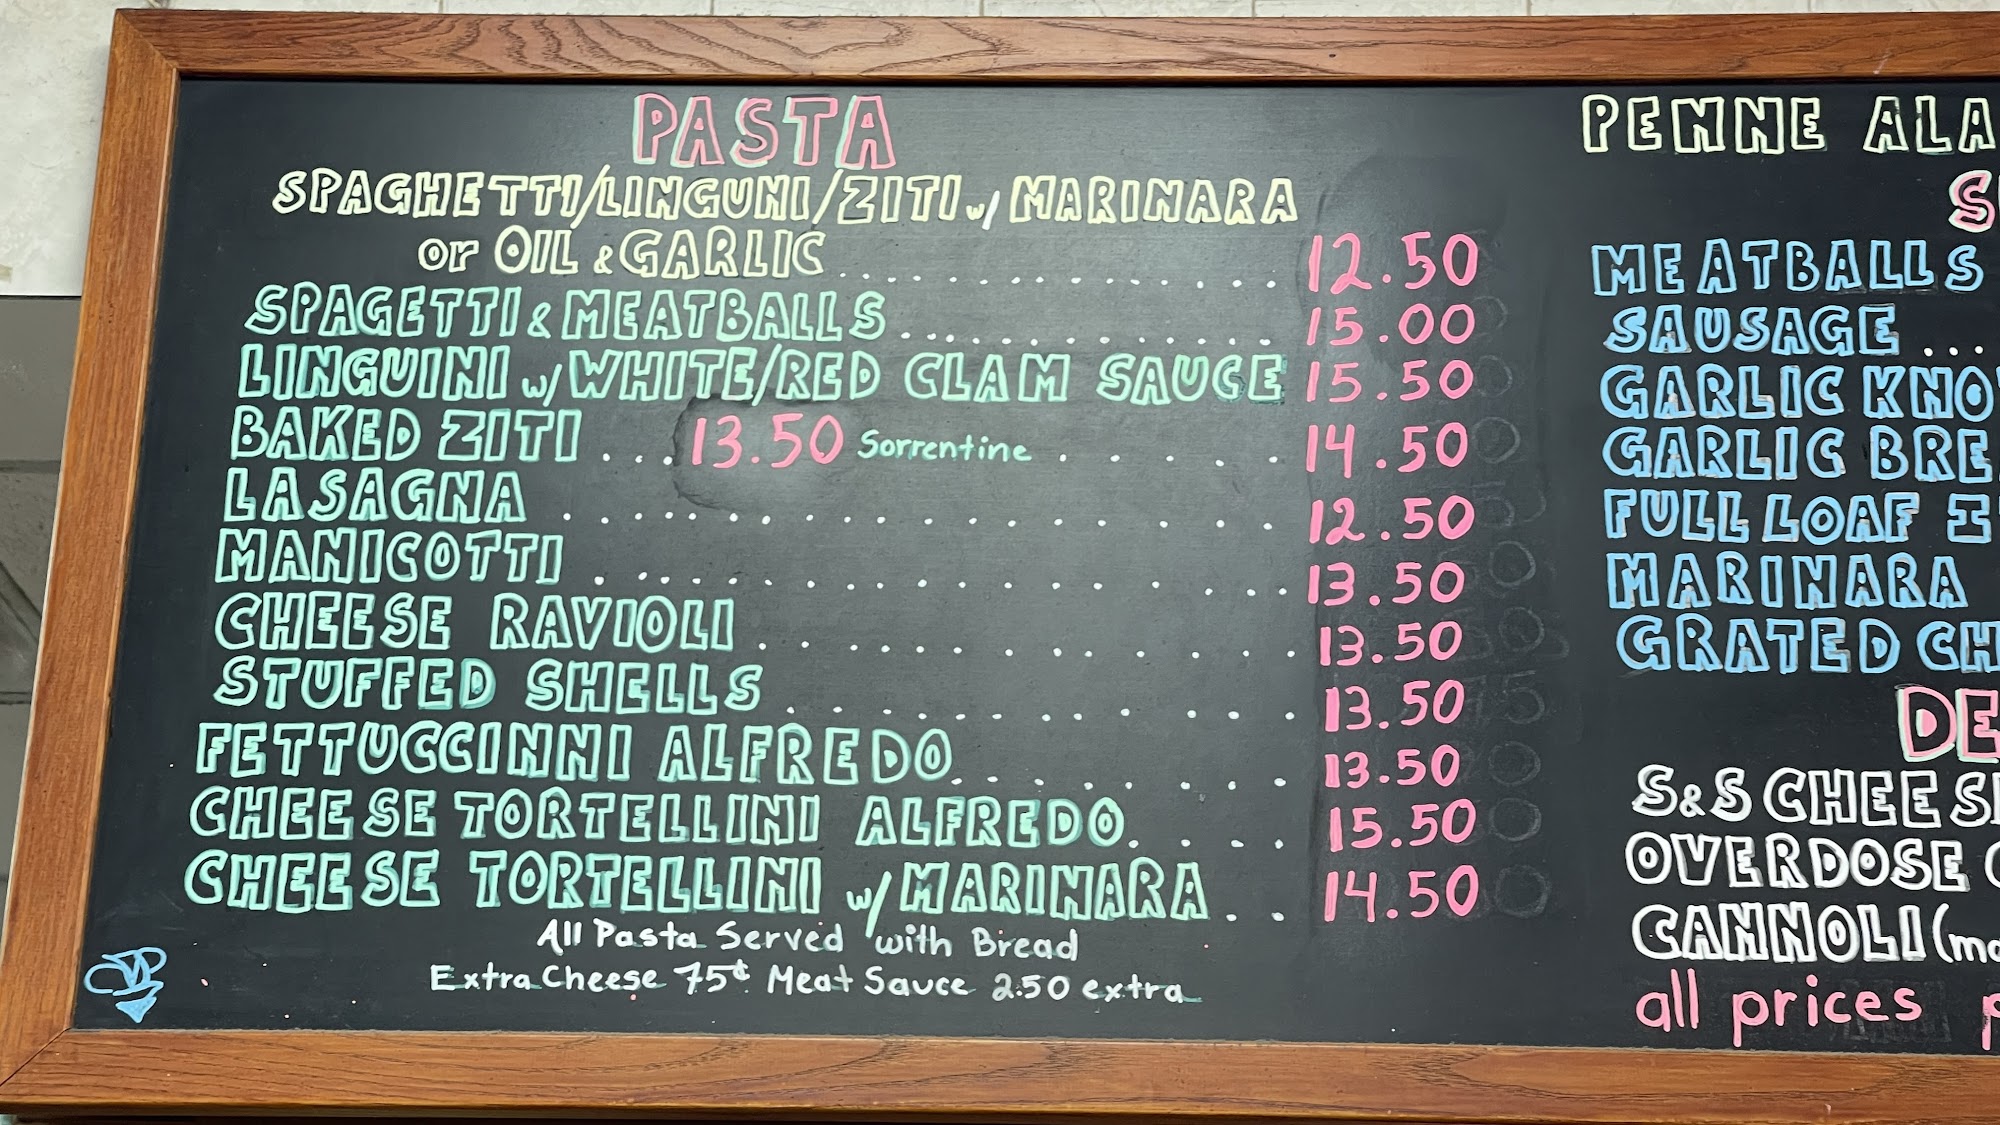 PASTA
SPAGHETTI/LINGUNI/ZITI w/ MARINARA
or OIL & GARLIC .................. 12.50
SPAGETTI & MEATBALLS .............. 15.00
LINGUINI w/ WHITE/RED CLAM SAUCE 15.50
BAKED ZITI .... 13.50 Sorrentine ...... 14.50
LASAGNA .................. 12.50
MANICOTTI .................. 13.50
CHEESE RAVIOLI .............. 13.50
STUFFED SHELLS .............. 13.50
FETTUCCINNI ALFREDO ......... 13.50
CHEESE TORTELLINI ALFREDO .... 15.50
CHEESE TORTELLINI w/ MARINARA .. 14.50
All Pasta Served with Bread
Extra Cheese 75¢ Meat Sauce 2.50 extra
PENNE ALA
MEATBALLS
SAUSAGE ...
GARLIC
GARLIC
FULL LOAF
MARINARA
GRATED
S&S
OVERDOSE
CANNOLI
all prices